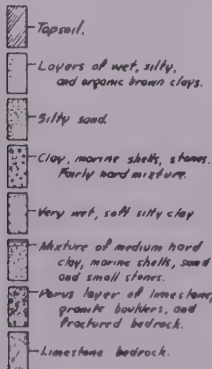 Topsoil.
Layers of wet, silty,
and organic brown clays.
Silty sand.
Clay, marine shells, stones.
Fairly hard mixture.
Very wet, soft silty clay
Mixture of medium hard
clay, marine shells, sand
and small stones.
Porus layer of limestone,
granite boulders, and
fractured bedrock.
Limestone bedrock.